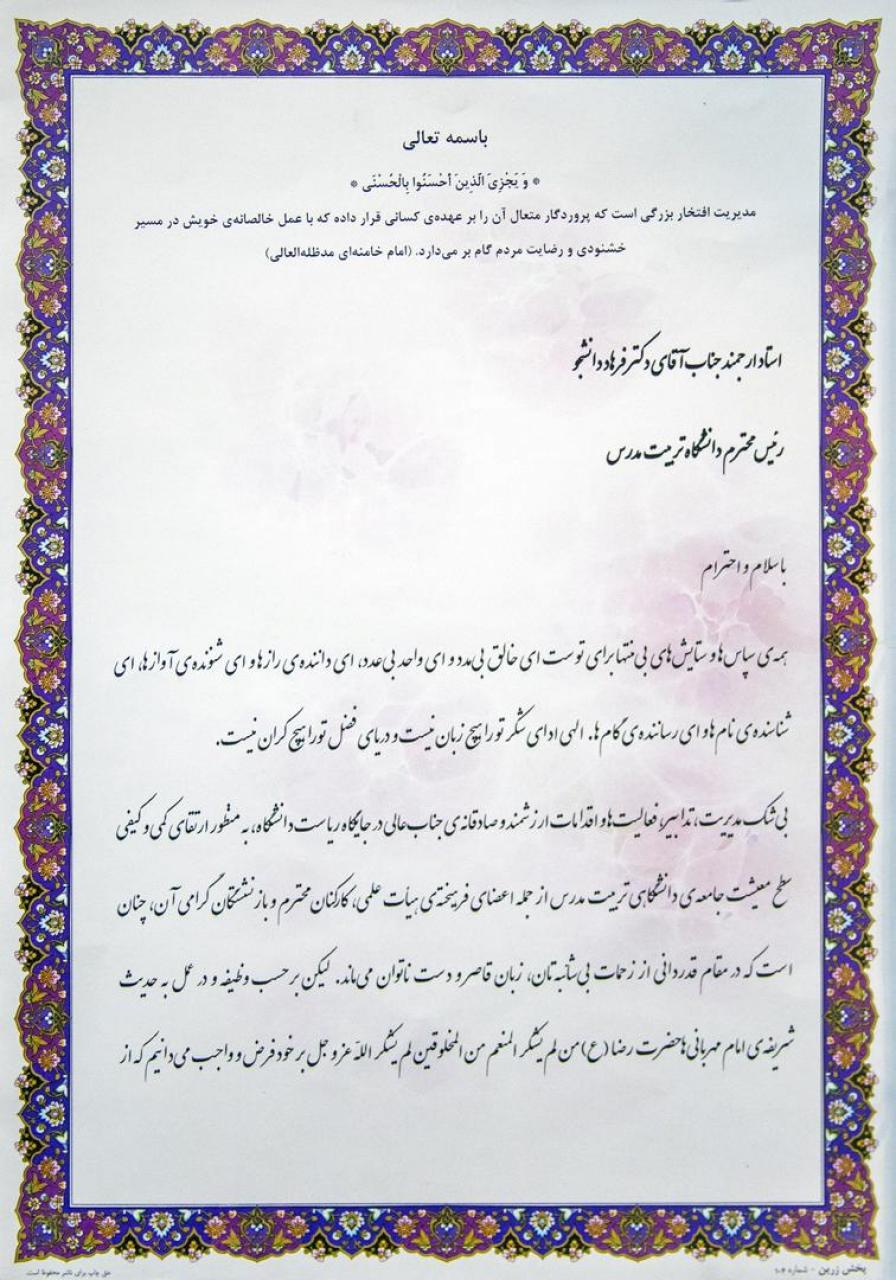 باسمه تعالی
* وَ یَجْزِیَ الَّذِینَ أَحْسَنُوا بِالْحُسْنَی *
مدیریت افتخار بزرگی است که پروردگار متعال آن را بر عهده‌ی کسانی قرار داده که با عمل خالصانه‌ی خویش در مسیر
خشنودی و رضایت مردم گام بر می‌دارد. (امام خامنه‌ای مدظله‌العالی)
استاد ارجمند جناب آقای دکتر فرهاد دانشجو
رئیس محترم دانشگاه تربیت مدرس
با سلام و احترام
همه‌ی سپاس‌ها و ستایش‌های بی‌منتها برای توست ای خالق بی‌مدد و ای واحد بی‌عدد، ای داننده‌ی رازها و ای شنونده‌ی آوازها، ای
شناسنده‌ی نام‌ها و ای رساننده‌ی گام‌ها. الهی ادای شکر تو را هیچ زبان نیست و دریای فضل تو را هیچ کران نیست.
بی‌شک مدیریت، تدابیر، فعالیت‌ها و اقدامات ارزشمند و صادقانه‌ی جناب‌عالی در جایگاه ریاست دانشگاه، به منظور ارتقای کمی و کیفی
سطح معیشت جامعه‌ی دانشگاهی تربیت مدرس از جمله اعضای فرهیخته‌ی هیأت علمی، کارکنان محترم و بازنشستگان گرامی آن، چنان
است که در مقام قدردانی از زحمات بی‌شائبه‌تان، زبان قاصر و دست ناتوان می‌ماند. لیکن بر حسب وظیفه و در عمل به حدیث
شریفه‌ی امام مهربانی‌ها حضرت رضا (ع) من لم یشکر المنعم من المخلوقین لم یشکر اللّه عزوجل بر خود فرض و واجب می‌دانیم که از
پخش زرین - شماره ۱۰۴
حق چاپ برای ناشر محفوظ است